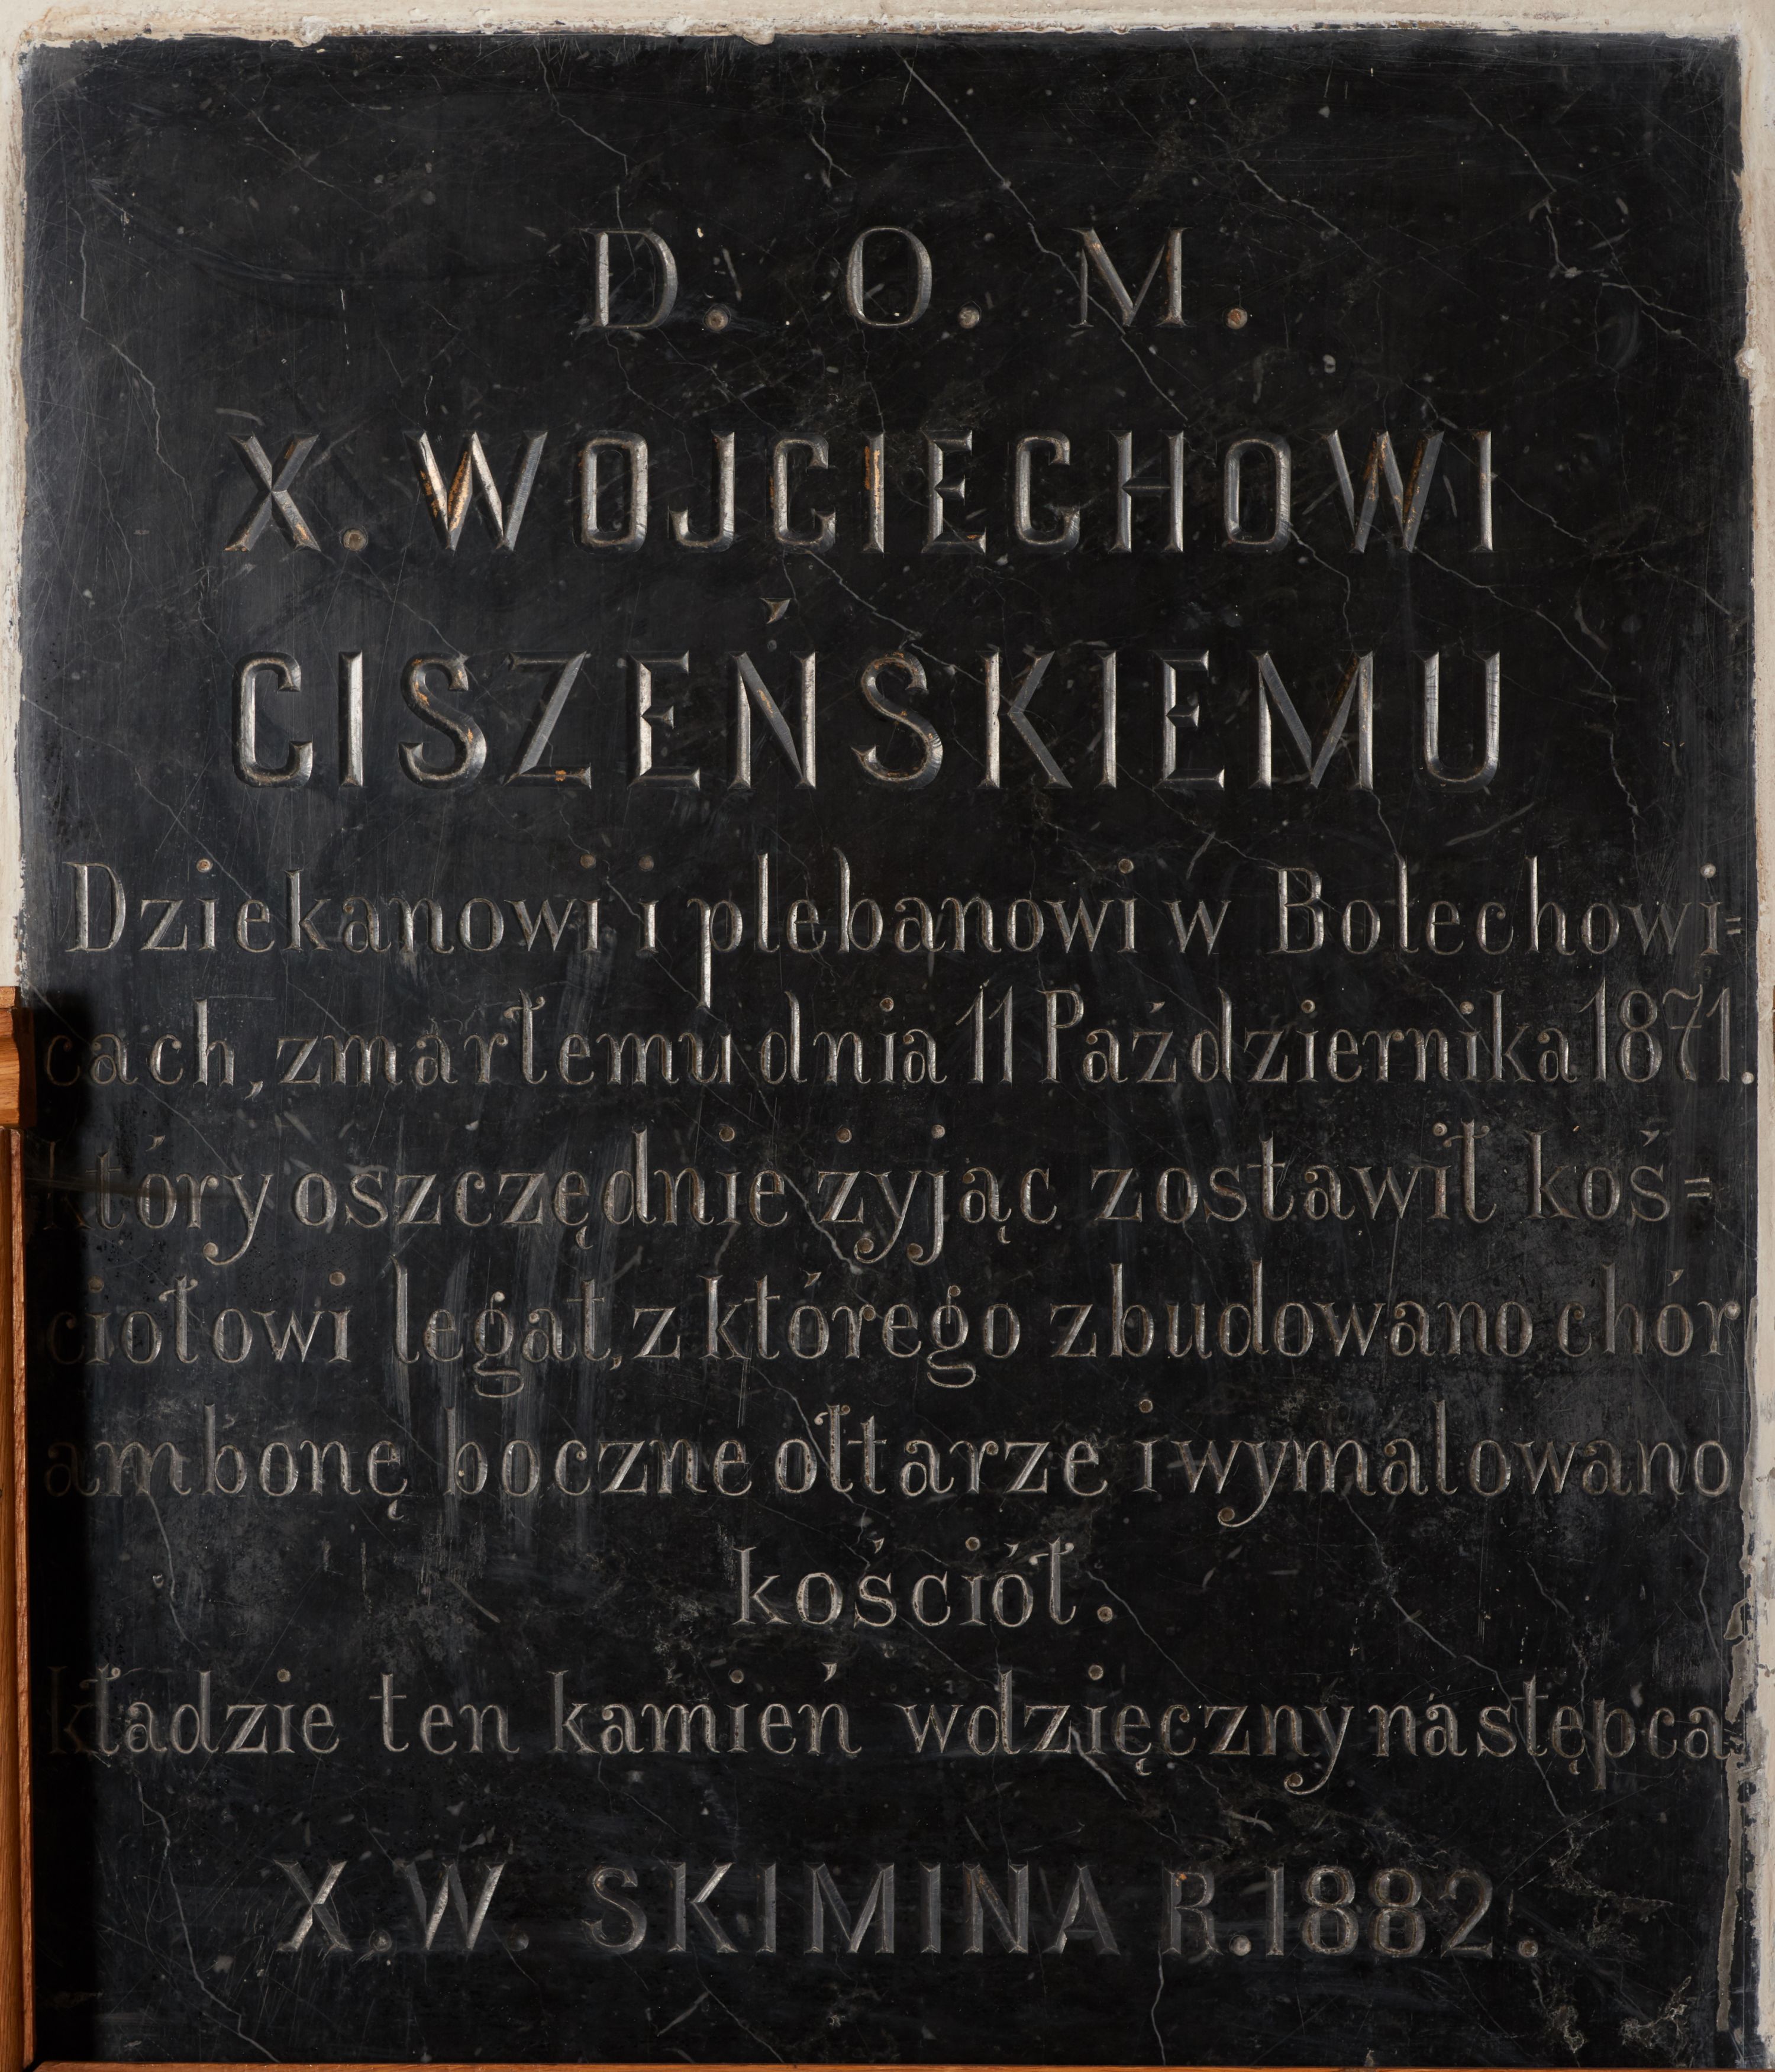 D. O. M.
X. WOJCIECHOWI
CISZEŃSKIEMU
Dziekanowi i plebanowi w Bolechowi=
cach, zmarłemu dnia 11 Października 1871.
który oszczędnie żyjąc zostawił koś=
ciołowi legat, z którego zbudowano chór
ambonę boczne ołtarze i wymalowano
kościół.
kładzie ten kamień wdzięczny następca
X.W. SKIMINA R.1882.